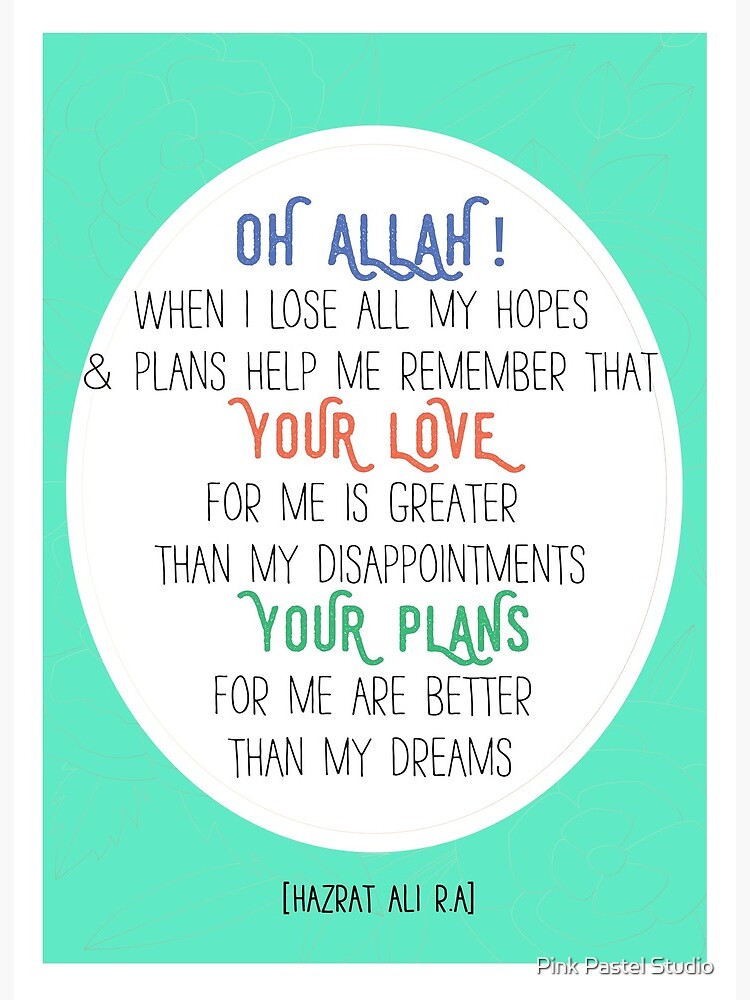 OH ALLAH!
WHEN I LOSE ALL MY HOPES
& PLANS HELP ME REMEMBER THAT
YOUR LOVE
FOR ME IS GREATER
THAN MY DISAPPOINTMENTS
YOUR PLANS
FOR ME ARE BETTER
THAN MY DREAMS
[HAZRAT ALI R.A]
Pink Pastel Studio